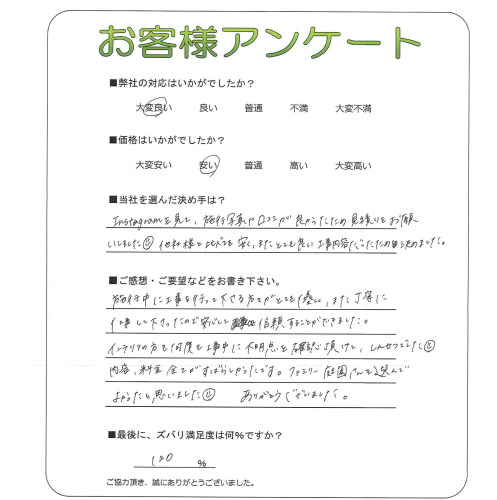 お客様アンケート
■弊社の対応はいかがでしたか？
大変良い 良い 普通 不満 大変不満
■価格はいかがでしたか？
大変安い 安い 普通 高い 大変高い
■当社を選んだ決め手は？
Instagramを見て、施行写真や口コミが良かったため見積りをお願
いしました☺ 他社様と比べても安く、またとても良い工事内容だったため決めました。
■ご感想・ご要望などをお書き下さい。
施行中に工事を行って下さる方々がとても優しく、また丁寧に
仕事して下さったので安心して信頼することができました。
インテリアの方も何度も工事中に不明点を確認頂けて、しんせつでした☺
内容、料金 全てがすばらしかったです。ファミリー庭園さんを選んで
よかったと思いました☺ ありがとうございました。
■最後に、ズバリ満足度は何％ですか？
120 ％
ご協力頂き、誠にありがとうございました。